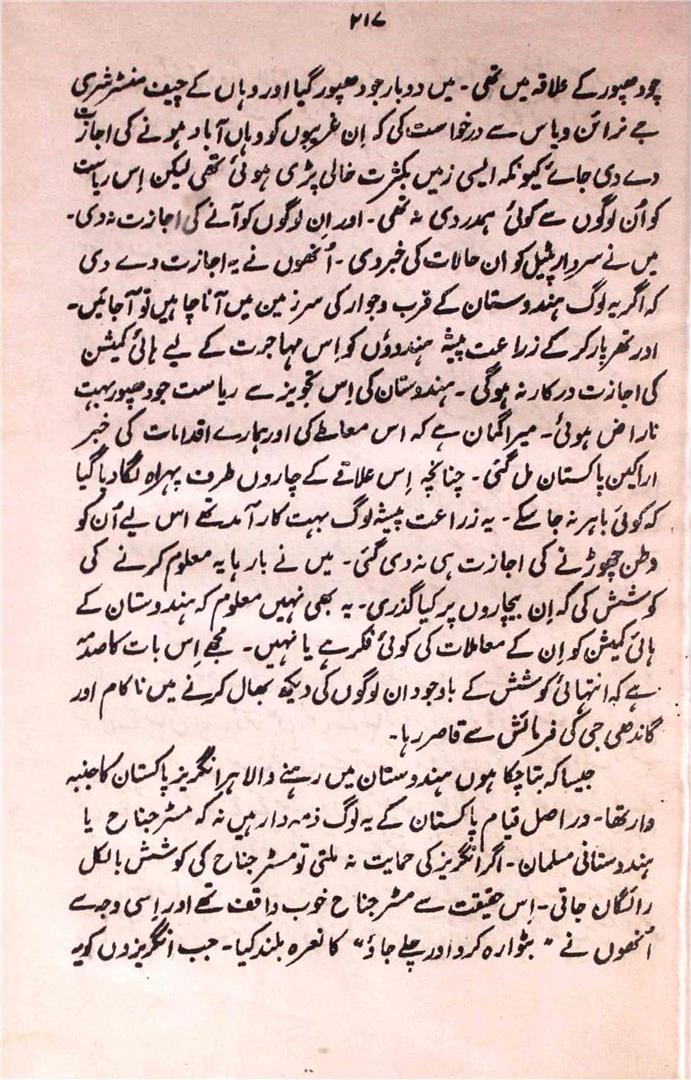 ۲۱۷
جودھپور کے علاقہ میں تھی ۔ میں دوبار جودھپور گیا اور وہاں کے چیف منسٹر شری
جے نرائن ویاس سے درخواست کی کہ اِن غریبوں کو وہاں آباد ہونے کی اجازت
دے دی جائے کیونکہ ایسی زمیں بکثرت خالی پڑی ہوئی تھی لیکن اِس ریاست
کو اُن لوگوں سے کوئی ہمدردی نہ تھی ۔ اور اِن لوگوں کو آنے کی اجازت نہ دی ۔
میں نے سردار پٹیل کو ان حالات کی خبر دی ۔ اُنھوں نے یہ اجازت دے دی
کہ اگر یہ لوگ ہندوستان کے قرب وجوار کی سرزمین میں آنا چاہیں تو آجائیں ۔
اور تھرپارکر کے زراعت پیشہ ہندوؤں کو اِس مہاجرت کے لیے ہائی کمیشن
کی اجازت درکار نہ ہوگی ۔ ہندوستان کی اِس تجویز سے ریاست جودھپور بہت
ناراض ہوئی ۔ میرا گمان ہے کہ اس معاملے کی اور ہمارے اقدامات کی خبر
اراکین پاکستان مل گئی ۔ چنانچہ اِس علاقے کے چاروں طرف پہراہ لگا دیا گیا
کہ کوئی باہر نہ جا سکے ۔ یہ زراعت پیشہ لوگ بہت کار آمد تھے اس لیے اُن کو
وطن چھوڑنے کی اجازت ہی نہ دی گئی ۔ میں نے بارہا یہ معلوم کرنے کی
کوشش کی کہ اِن بیچاروں پر کیا گذری ۔ یہ بھی نہیں معلوم کہ ہندوستان کے
ہائی کمیشن کو اِن کے معاملات کی کوئی فکر ہے یا نہیں ۔ مجھے اِس بات کا صدمہ
ہے کہ انتہائی کوشش کے باوجود ان لوگوں کی دیکھ بھال کرنے میں ناکام اور
گاندھی جی کی فرمائش سے قاصر رہا ۔
جیسا کہ بتا چکا ہوں ہندوستان میں رہنے والا ہر انگریز پاکستان کا جنبہ
وار تھا ۔ دراصل قیام پاکستان کے یہ لوگ ذمہ دار ہیں نہ کہ مسٹر جناح یا
ہندوستانی مسلمان ۔ اگر انگریز کی حمایت نہ ملتی تو مسٹر جناح کی کوشش بالکل
رائگان جاتی ۔ اِس حقیقت سے مسٹر جناح خوب واقف تھے اور اِسی وجہ سے
اُنھوں نے ” بٹوارہ کرو اور چلے جاؤ “ کا نعرہ بلند کیا ۔ جب انگریزوں کو یہ